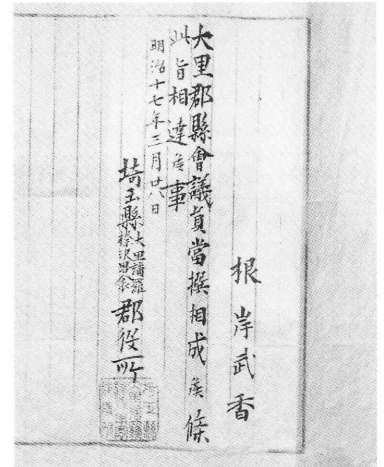 根岸武香
大里郡縣會議員當撰相成候條
此旨相達候事
明治十七年三月廿八日
埼玉縣大里幡羅榛沢男衾郡役所